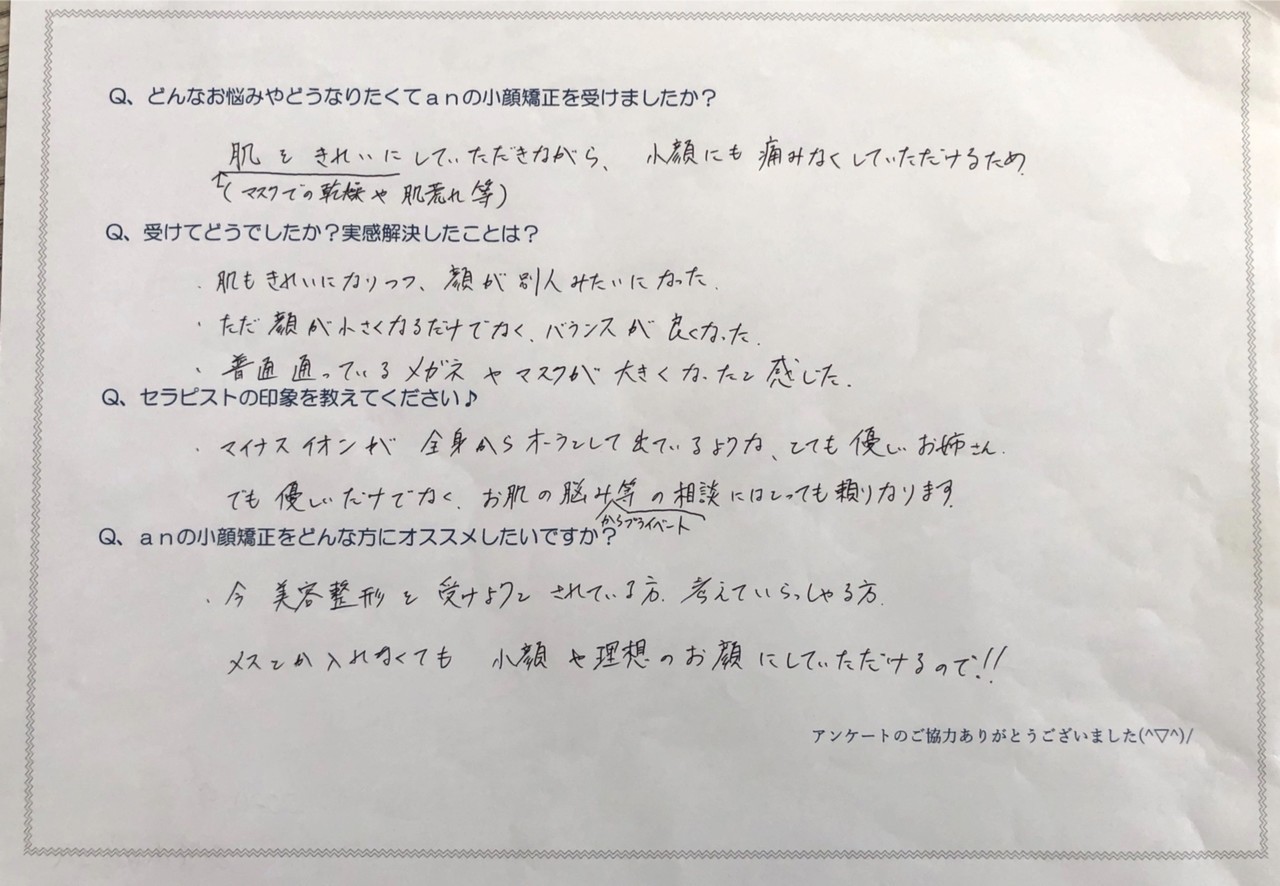 Q、どんなお悩みやどうなりたくてａｎの小顔矯正を受けましたか？
肌をきれいにしていただきながら、小顔にも痛みなくしていただけるため
(マスクでの乾燥や肌荒れ等)
Q、受けてどうでしたか？実感解決したことは？
・肌もきれいになりつつ、顔が別人みたいになった.
・ただ顔が小さくなるだけでなく、バランスが良くなった.
・普通通っているメガネやマスクが大きくなったと感じた.
Q、セラピストの印象を教えてください♪
・マイナスイオンが全身からオーラとして出ているような、とても優しいお姉さん.
でも優しいだけでなく、お肌の脳み等の相談にはとっても頼りなります.
からプライベート
Q、ａｎの小顔矯正をどんな方にオススメしたいですか？
・今美容整形を受けようとされている方.考えていらっしゃる方.
メスとか入れなくても小顔や理想のお顔にしていただけるので!!
アンケートのご協力ありがとうございました(^▽^)/